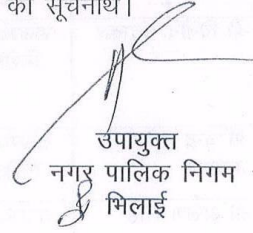 को सूचनार्थ।
उपायुक्त
नगर पालिक निगम
भिलाई